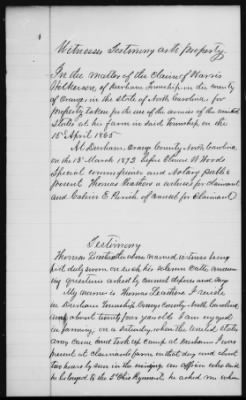 Witnesses Testimony as to property.
In the matter of the claim of Harris
Wilkerson of Durham Township in the county
of Orange in the state of North Carolina for
property taken for the use of the armies of the united
States at his farm in said Township on the
15th April 1865
At Durham Orange County North Carolina
on the 13th March 1872 before Clinn W Woods
Special commissioner and Notary Public
present Thomas a witness for claimant
and Calvin E. Parish of counsel for Claimant
Testimony
Thomas above named witness being
first duly sworn on such his solemn oath answering
questions asked by counsel deposes and says
My name is Thomas I reside
in Durham Township Orange County North Carolina
am about twenty four years old I am engaged
in farming, on a Saturday when the united states
army came and took up camp at Durhams I was
present at claimants farm on that day and about
two hours by sun in the evening an officer who said
he belonged to the Ohio Regiment, he asked me whom